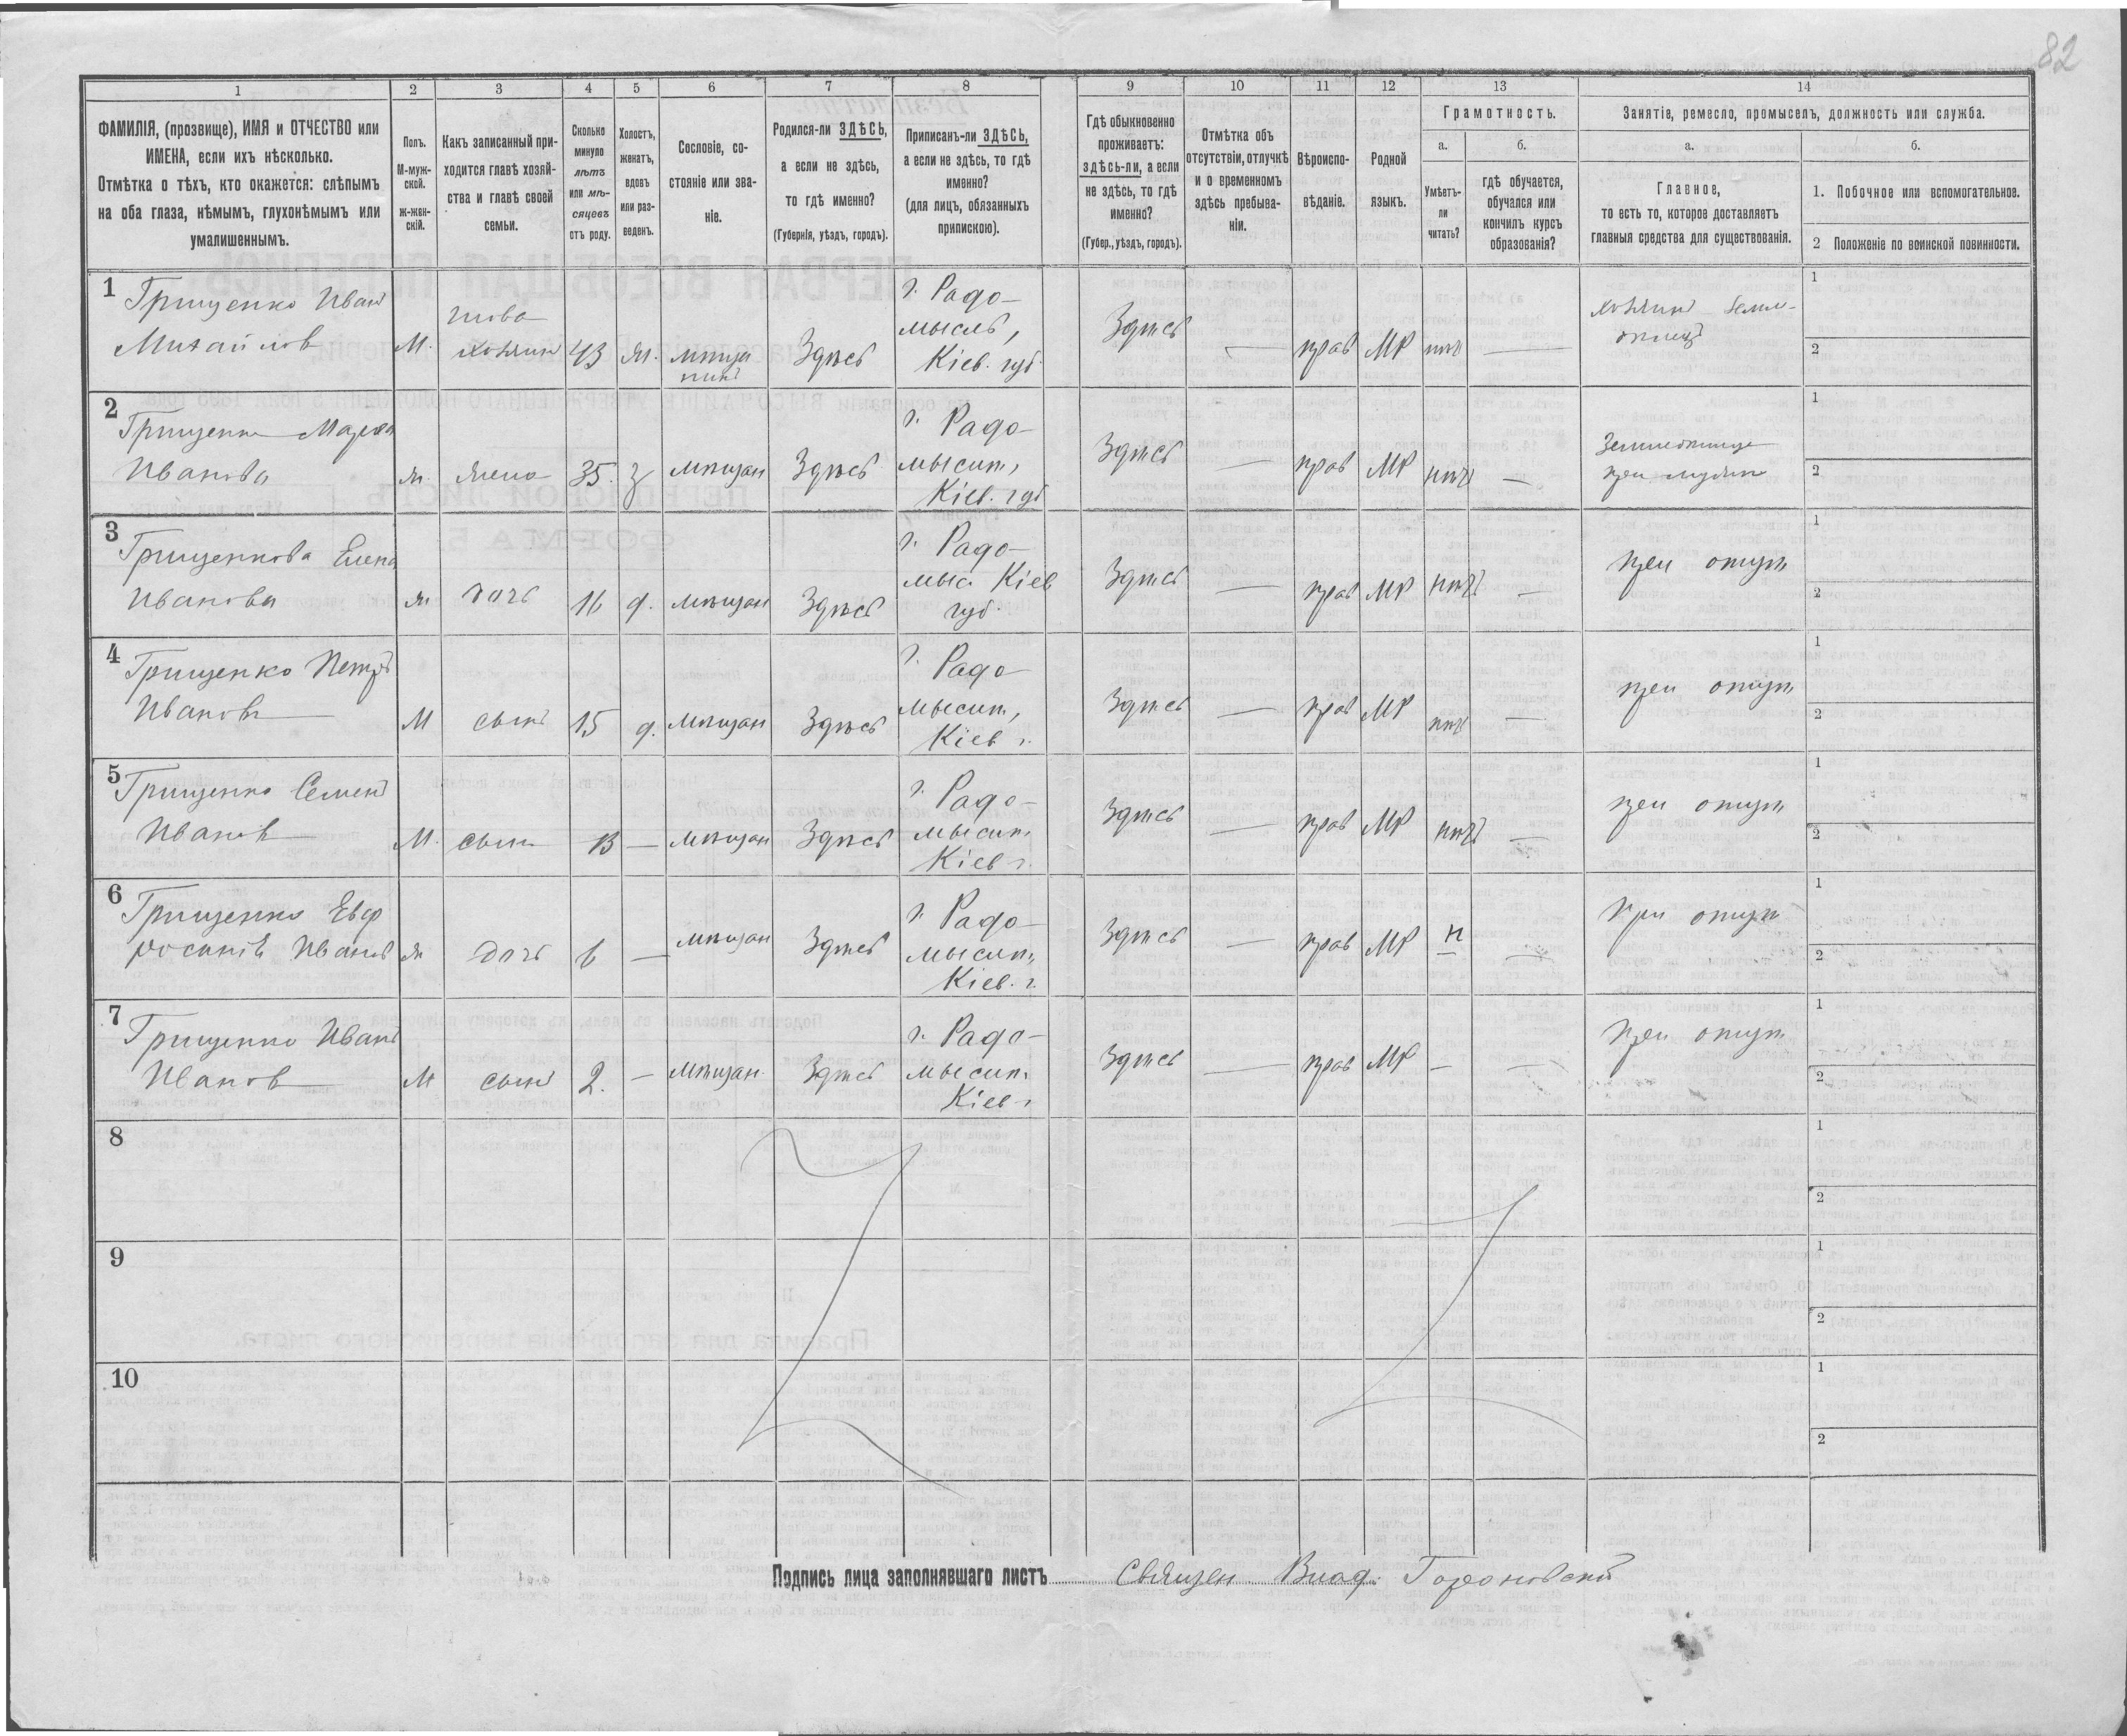 82
1 2 3 4 5 6 7 8 9 10 11 12 13 14
ФАМИЛІЯ, (прозвище), ИМЯ и ОТЧЕСТВО или
ИМЕНА, если ихъ нѣсколько.
Отмѣтка о тѣхъ, кто окажется: слѣпымъ
на оба глаза, нѣмымъ, глухонѣмымъ или
умалишеннымъ.
Полъ.
М-муж-
ской.
ж-жен-
скій.
Какъ записанный при-
ходится главѣ хозяй-
ства и главѣ своей
семьи.
Сколько
минуло
лѣтъ
или мѣ-
сяцевъ
отъ роду.
Холостъ,
женатъ,
вдовъ
или раз-
веденъ.
Сословіе, со-
стояніе или зва-
ніе.
Родился-ли ЗДѢСЬ,
а если не здѣсь,
то гдѣ именно?
(Губернія, уѣздъ, городъ).
Приписанъ-ли ЗДѢСЬ,
а если не здѣсь, то гдѣ
именно?
(для лицъ, обязанныхъ
припискою).
Гдѣ обыкновенно
проживаетъ:
здѣсь-ли, а если
не здѣсь, то гдѣ
именно?
(Губер., уѣздъ, городъ).
Отмѣтка объ
отсутствіи, отлучкѣ
и о временномъ
здѣсь пребыва-
ніи.
Вѣроиспо-
вѣданіе.
Родной
языкъ.
Грамотность.
а.
Умѣетъ-
ли
читать?
б.
гдѣ обучается,
обучался или
кончилъ курсъ
образованія?
Занятіе, ремесло, промыселъ, должность или служба.
а.
Главное,
то есть то, которое доставляетъ
главныя средства для существованія.
б.
1. Побочное или вспомогательное.
2 Положеніе по воинской повинности.
1 Грищенко Иванъ
Михайлов М. хозяинъ 43 ж. мѣща Здѣсь
г. Радо-
мысль,
Кіев. губ.
Здѣсь — прав МР нѣтъ —
хозяинъ земле-
1
2
2 Грищенк Марья
Иванова ж жена 35. з мѣщан Здѣсь
г. Радо-
мысль,
Кіев. губ
Здѣсь — прав МР нѣтъ —
при мужѣ
1
2
3 Грищенкова Елена
Иванова ж дочь 16 д. мѣщан Здѣсь
г. Радо-
мыс. Кіев
губ.
Здѣсь — прав МР нѣтъ —
при отцѣ
1
2
4 Грищенко Петръ
Иванов М сынъ 15 д. мѣщан Здѣсь
г. Радо-
мысль,
Кіев г.
Здѣсь — прав МР нѣтъ —
при отцѣ
1
2
5 Грищенко Семенъ
Иванов М. сынъ 13 — мѣщан Здѣсь
г. Радо-
мысль,
Кіев г.
Здѣсь — прав МР нѣтъ —
при отцѣ
1
2
6 Грищенко Евф
росинія Иванов ж дочь 6 — мѣщан Здѣсь
г. Радо-
мысль,
Кіев. г.
Здѣсь — прав МР н —
при отцѣ
1
2
7 Грищенко Иванъ
Иванов М сынъ 2. — мѣщан. Здѣсь
г. Радо-
мысль,
Кіев г.
Здѣсь — прав МР — —
при отцѣ
1
2
8
1
2
9
1
2
10
1
2
Подпись лица заполнявшаго листъ Священ Влад.